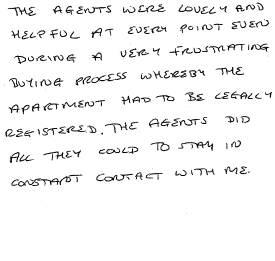 THE AGENTS WERE LOVELY AND
HELPFUL AT EVERY POINT EVEN
DURING A VERY FRUSTRATING
BUYING PROCESS WHEREBY THE
APARTMENT HAD TO BE LEGALLY
REGISTERED. THE AGENTS DID
ALL THEY COULD TO STAY IN
CONSTANT CONTACT WITH ME.